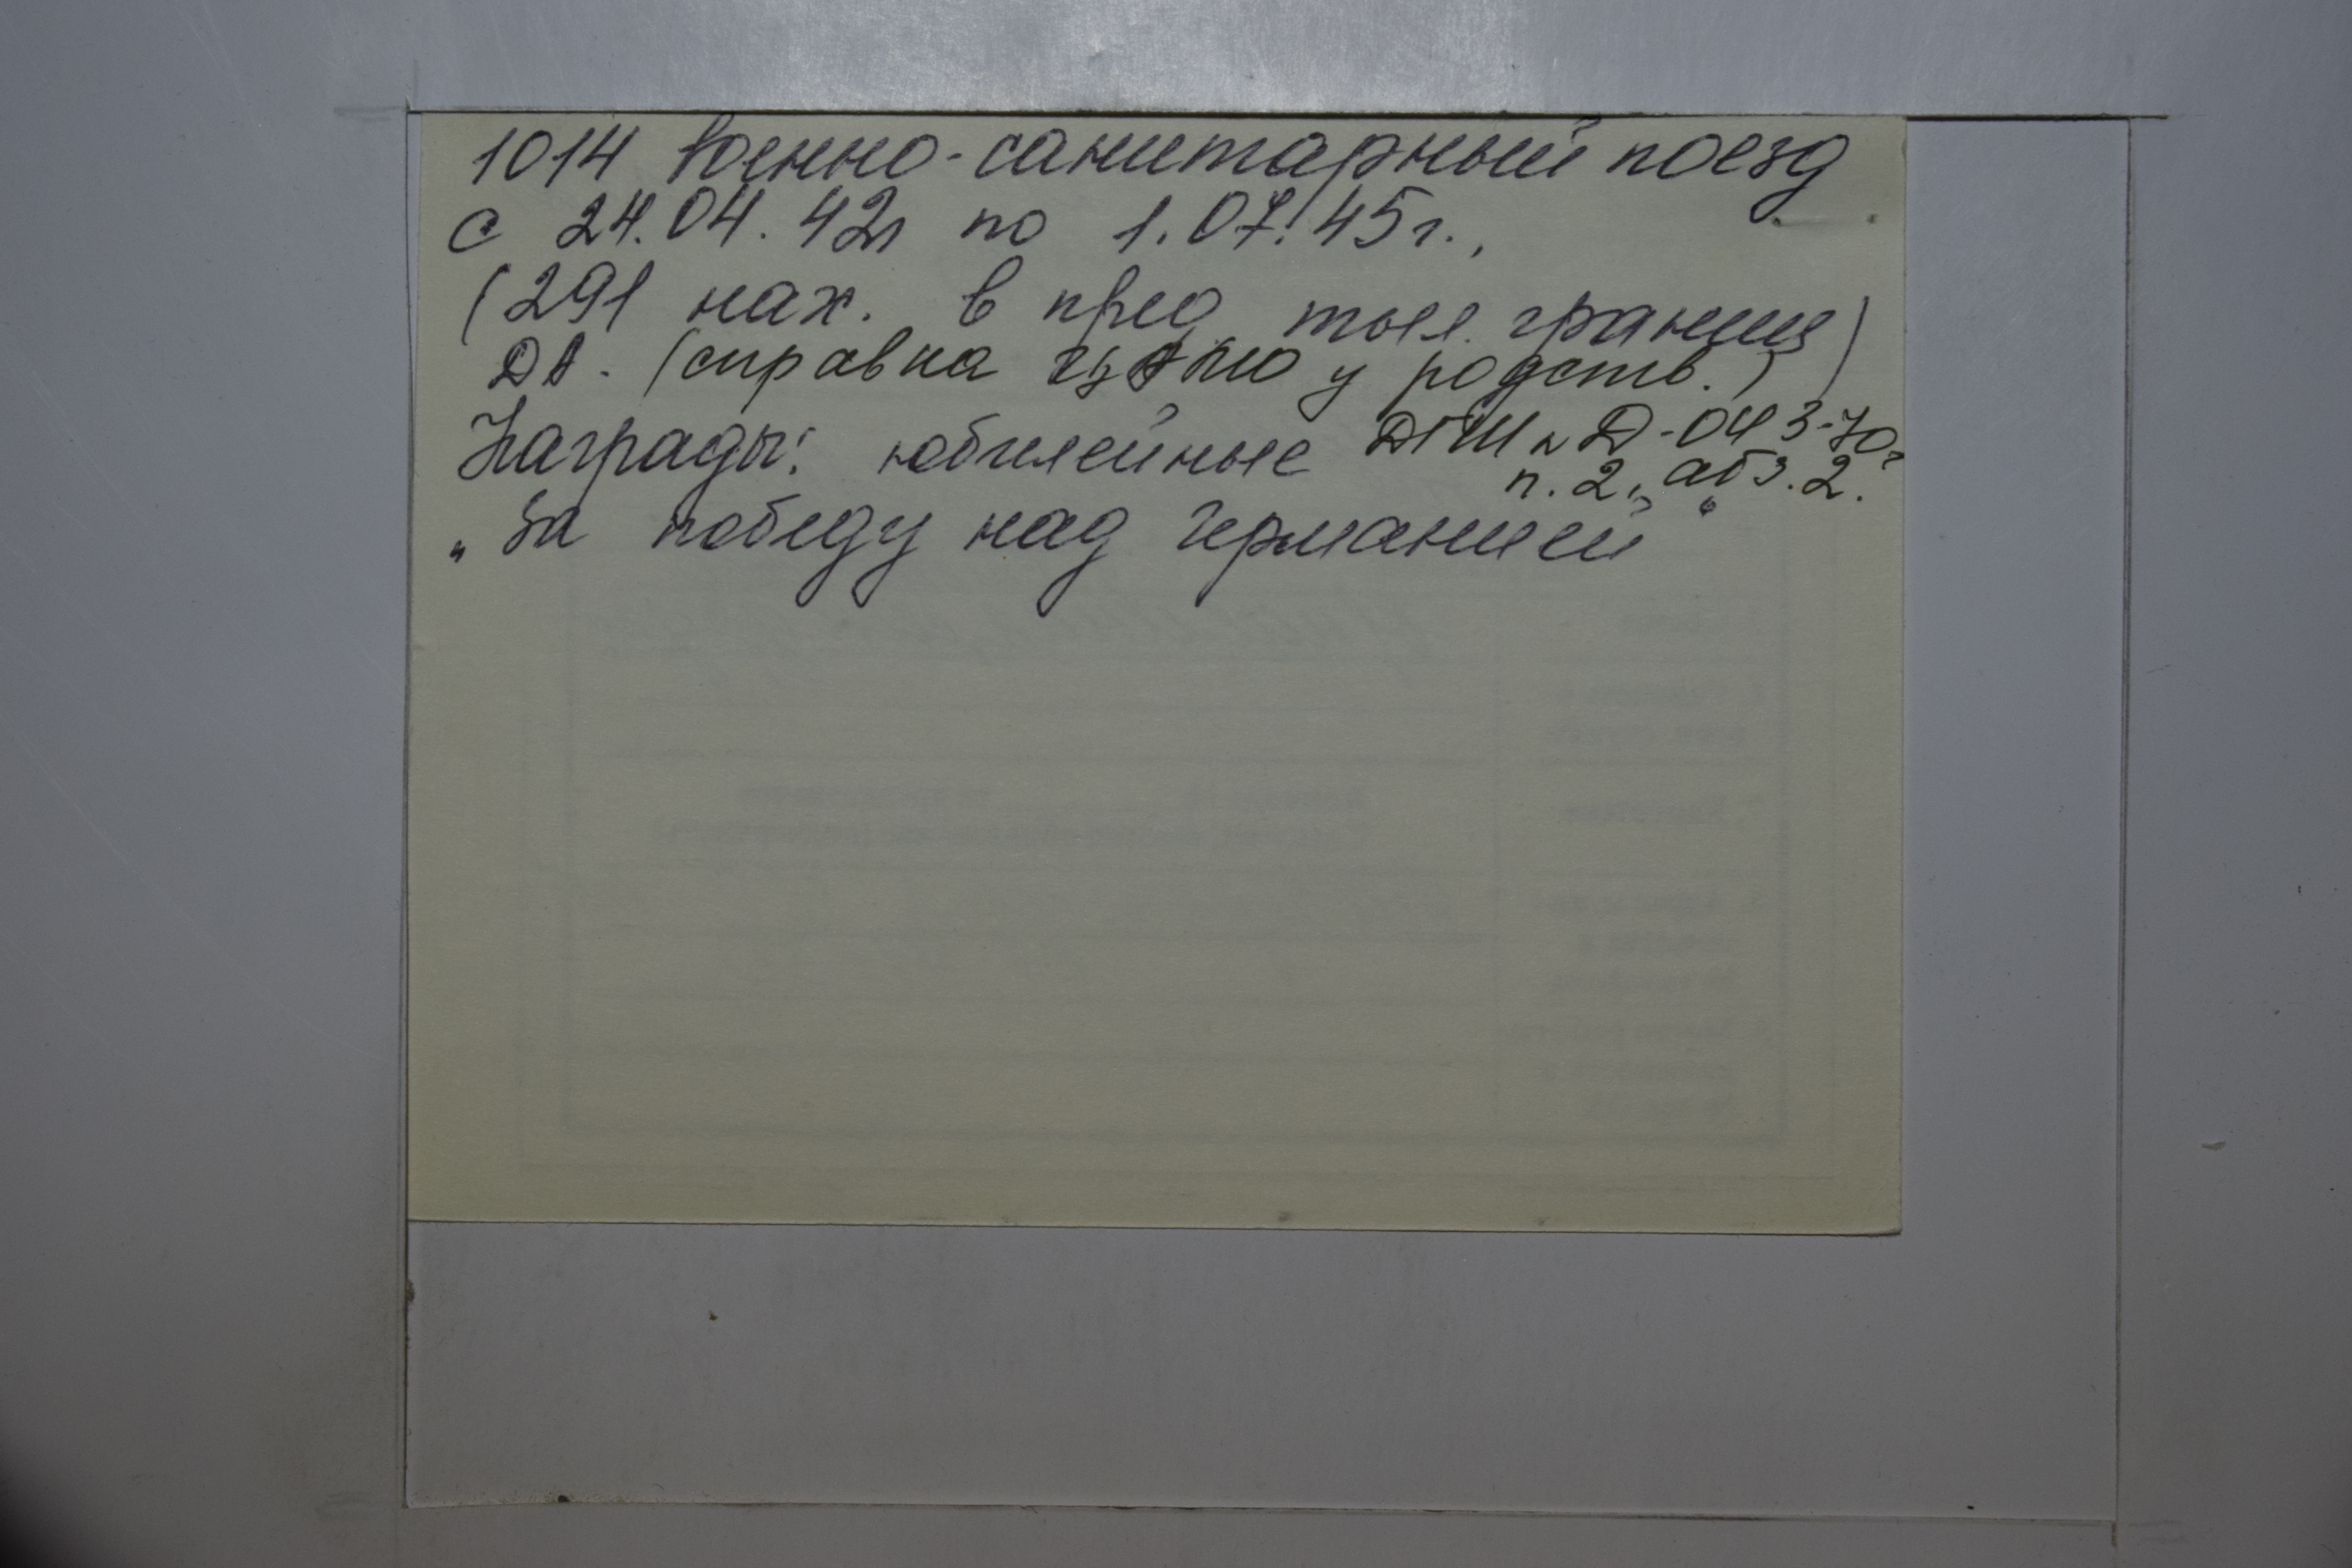 1014 Военно-санитарный поезд
с 24.04.42г по 1.07.45г.,
(291 нах. в пред. тыл. границ)
ДА. (справка ЦАМО у родств.)
Награды: юбилейные ДГШ Д-043-70г
п. 2, абз. 2.
„За победу над Германией“